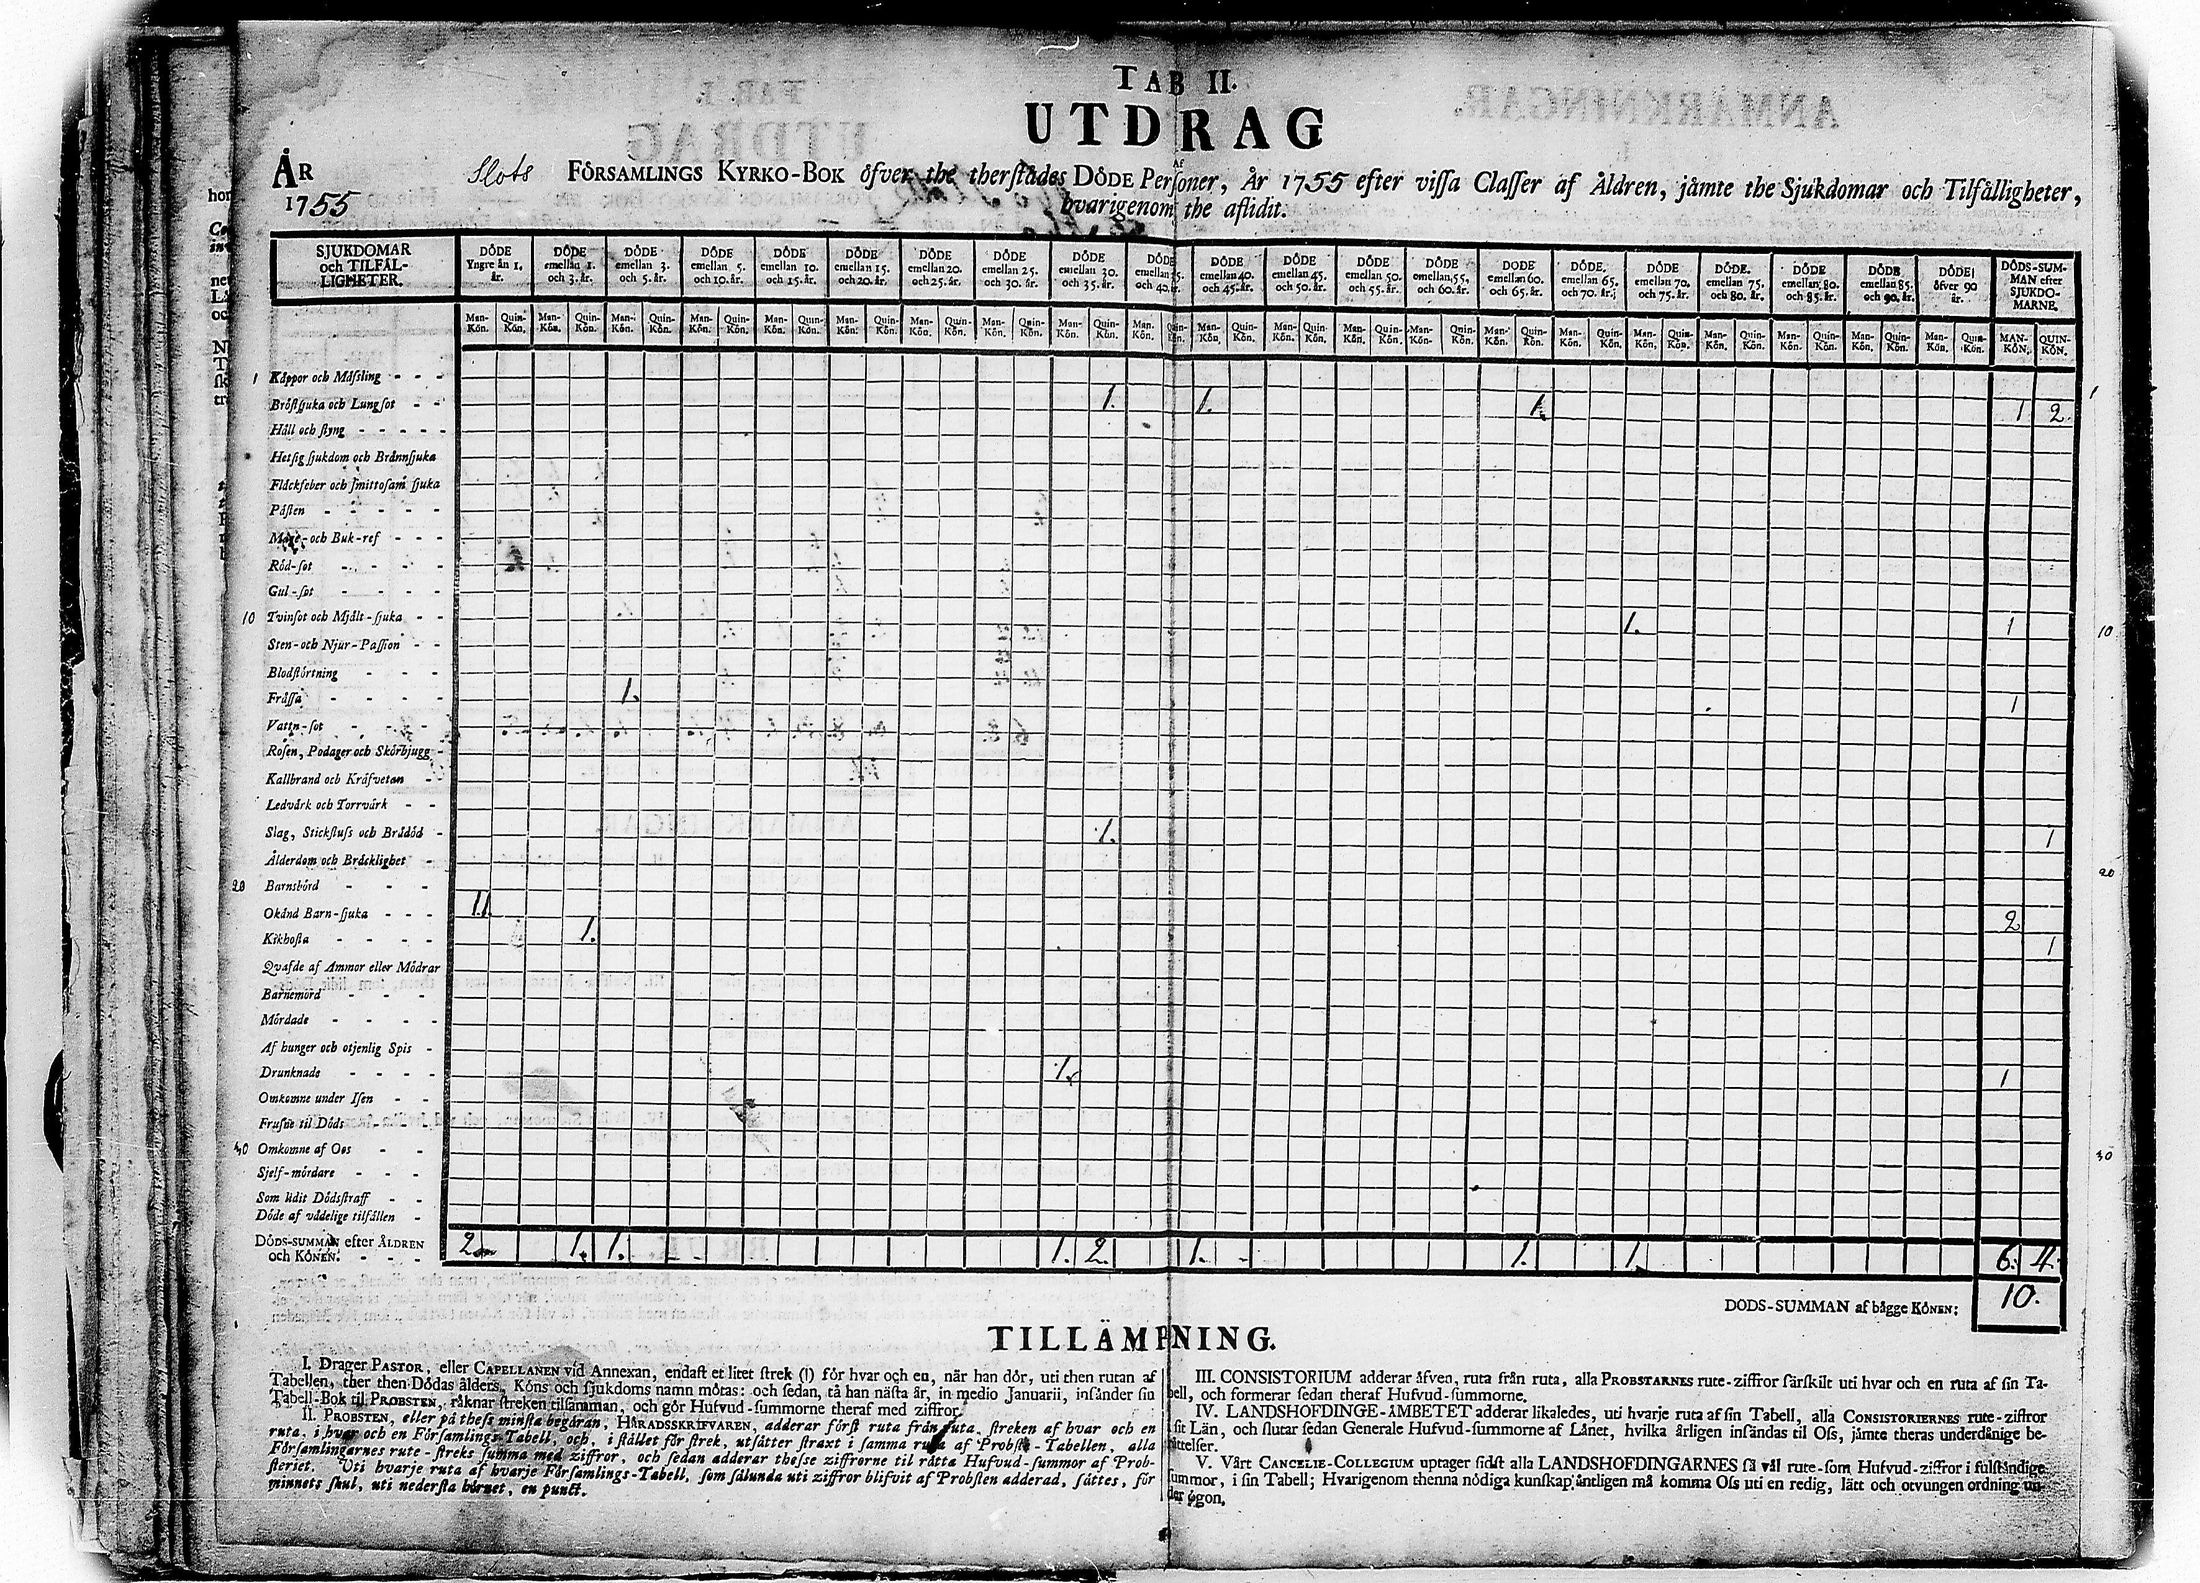 TAB II.
UTDRAG
Af
ÅR
1755
Slots FÖRSAMLINGS KYRKO-BOK öfver the therstädes DÖDE Personer, År 1755 efter vissa Classer af Åldren, jämte the Sjukdomar och Tilfälligheter,
hvarigenom the aflidit.
SJUKDOMAR och TILFÄL-LIGHETER.
DÖDE Yngre än 1. år.
DÖDE emellan 1. och 3. år.
DÖDE emellan 3. och 5. år.
DÖDE emellan 5. och 10. år.
DÖDE emellan 10. och 15. år.
DÖDE emellan 15. och 20. år.
DÖDE emellan 20. och 25. år.
DÖDE emellan 25. och 30. år.
DÖDE emellan 30. och 35. år.
DÖDE emellan 35. och 40. år.
DÖDE emellan 40. och 45. år.
DÖDE emellan 45. och 50. år.
DÖDE emellan 50. och 55. år.
DÖDE emellan 55. och 60. år.
DÖDE emellan 60. och 65. år.
DÖDE emellan 65. och 70. år.
DÖDE emellan 70. och 75. år.
DÖDE emellan 75. och 80. år.
DÖDE emellan 80. och 85. år.
DÖDE emellan 85. och 90. år.
DÖDE öfver 90 år.
DÖDS-SUM-MAN efter SJUKDO-MARNE.
Man-Kön. Quin-Kön. Man-Kön. Quin-Kön. Man-Kön. Quin-Kön. Man-Kön. Quin-Kön. Man-Kön. Quin-Kön. Man-Kön. Quin-Kön. Man-Kön. Quin-Kön. Man-Kön. Quin-Kön. Man-Kön. Quin-Kön. Man-Kön. Quin-Kön. Man-Kön. Quin-Kön. Man-Kön. Quin-Kön. Man-Kön. Quin-Kön. Man-Kön. Quin-Kön. Man-Kön. Quin-Kön. Man-Kön. Quin-Kön. Man-Kön. Quin-Kön. Man-Kön. Quin-Kön. Man-Kön. Quin-Kön. Man-Kön. Quin-Kön. Man-Kön. Quin-Kön. MAN-KÖN. QUIN-KÖN.
1 Kåppor och Mässling - - - 1
Bröstsjuka och Lungsot - - 1. 1. 1. 1 2.
Håll och styng - - - - -
Hetsig sjukdom och Brännsjuka
Fläckfeber och smittosam sjuka
Pästen - - - - -
Mage- och Buk-ref - - -
Röd-sot - - - -
Gul-sot - - - -
10 Tvinsot och Mjält-sjuka - - 1. 1 10
Sten- och Njur-Passion - -
Blodstörtning - - -
Frässa - - - - 1. 1
Vattn-sot - - - -
Rosen, Podager och Skörbjugg -
Kallbrand och Kräfvetan -
Ledvärk och Torrvärk - -
Slag, Stickfluss och Brådöd - 1. 1
Ålderdom och Bräcklighet -
20 Barnsbörd - - - 20
Okänd Barn-sjuka - - - 11. 2
Kikhosta - - - - 1. 1
Qvafde af Ammor eller Mödrar
Barnemord - - - -
Mördade - - - -
Af hunger och otjenlig Spis -
Drunknade - - - - 1. 1
Omkomne under Isen - -
Frusne til Döds - - -
30 Omkomne af Oos - - 30
Sjelf-mördare - - -
Som lidit Dödsstraff - -
Döde af vådelige tilfällen -
DÖDS-SUMMAN efter ÅLDREN
och KÖNEN. - - - 2 1. 1. 1. 2. 1. 1. 1. 6. 4.
DÖDS-SUMMAN af bägge KÖNEN: 10.
TILLÄMPNING.
I. Drager PASTOR, eller CAPELLANEN vid Annexan, endast et litet strek (|) för hvar och en, när han dör, uti then rutan af
Tabellen, ther then Dödas ålders, Köns och sjukdoms namn mötas: och sedan, tå han nästa år, in medio Januarii, insänder sin
Tabell-Bok til PROBSTEN, räknar streken tilsamman, och gör Hufvud-summorne theraf med ziffror.
II. PROBSTEN, eller på thess minsta begäran, HÄRADSSKRIFVAREN, adderar först ruta från ruta, streken af hvar och en
ruta, i hvar och en Församlings-Tabell, och, i stället för strek, utsätter straxt i samma ruta af Probste-Tabellen, alla
Församlingarnes rute-streks summa med ziffror, och sedan adderar thesse ziffrorne til rätta Hufvud-summor af Prob-
steriet. Uti hvarje ruta af hvarje Församlings-Tabell, som sålunda uti ziffror blifvit af Probsten adderad, sättes, för
minnets skul, uti nedersta hörnet, en punct.
III. CONSISTORIUM adderar äfven, ruta från ruta, alla PROBSTARNES rute-ziffror särskilt uti hvar och en ruta af sin Ta-
bell, och formerar sedan theraf Hufvud-summorne.
IV. LANDSHOFDINGE-ÄMBETET adderar likaledes, uti hvarje ruta af sin Tabell, alla CONSISTORIERNES rute-ziffror
sit Län, och slutar sedan Generale Hufvud-summorne af Länet, hvilka årligen insändas til Oss, jämte theras underdånige be-
rättelser.
V. Vårt CANCELIE-COLLEGIUM uptager sidst alla LANDSHOFDINGARNES så väl rute- som Hufvud-ziffror i fulständige
summor, i sin Tabell; Hvarigenom thenna nödiga kunskap äntligen må komma Oss uti en redig, lätt och otvungen ordning un-
der ögon.